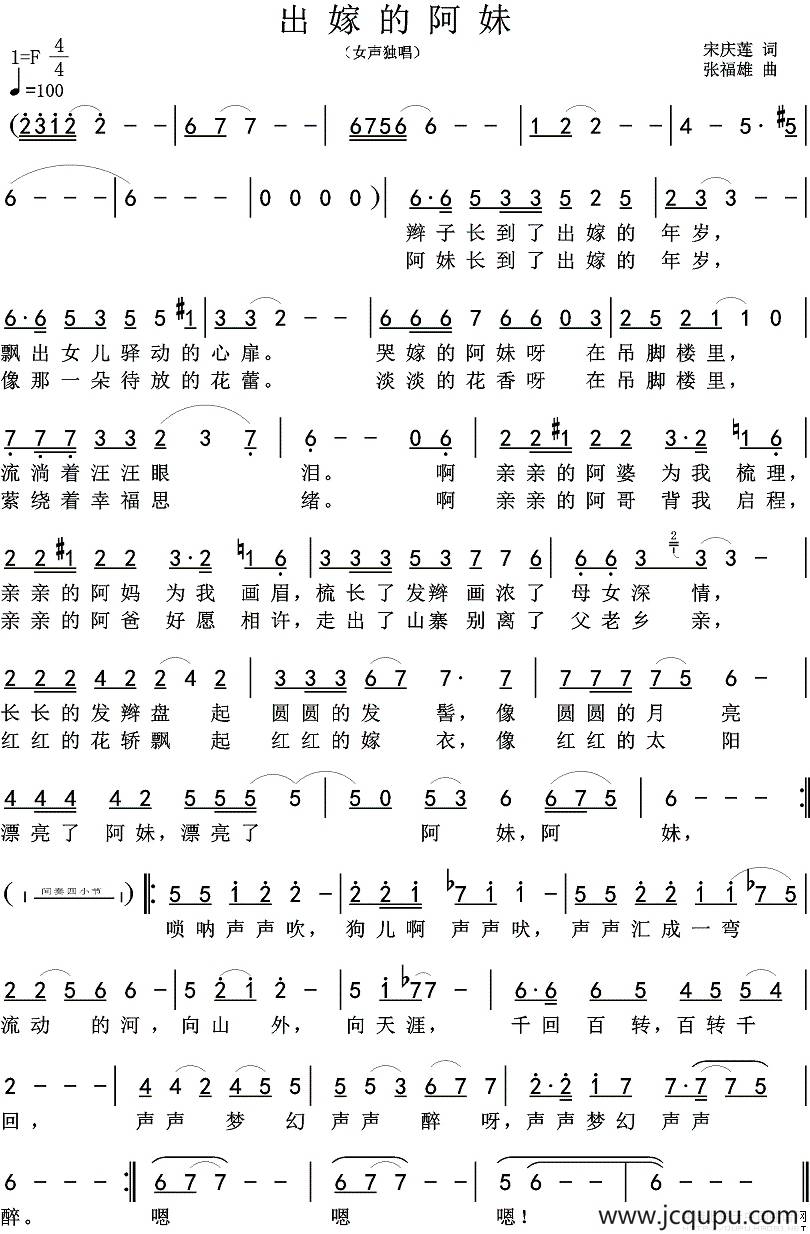 出嫁的阿妹
（女声独唱）
1=F 4/4
♩=100
宋庆莲 词
张福雄 曲
(2312 2 - - | 6 7 7 - - | 6756 6 - - | 1 2 2 - - | 4 - 5· #5
6 - - - | 6 - - - | 0 0 0 0 ) | 6·6 5 33 5 2 5 | 2 3 3 - - |
辫子长到了出嫁的 年岁，
阿妹长到了出嫁的 年岁，
6·6 5 3 5 5 #1 | 3 3 2 - - | 6 6 6 7 6 6 0 3 | 2 5 2 1 1 1 0
飘出女儿驿动的心扉。 哭嫁的阿妹呀 在吊脚楼里，
像那一朵待放的花蕾。 淡淡的花香呀 在吊脚楼里，
7 7 7 3 3 2 3 7 | 6 - - 0 6 | 2 2 #1 2 2 3·2 ♮1 6 |
流淌着汪汪眼 泪。 啊 亲亲的阿婆 为我 梳理，
萦绕着幸福思 绪。 啊 亲亲的阿哥 背我 启程，
2 2 #1 2 2 3·2 ♮1 6 | 3 3 3 5 3 7 7 6 | 6 6 3 3 3 - |
亲亲的阿妈 为我 画眉，梳长了发辫 画浓了 母女深 情，
亲亲的阿爸 好愿 相许，走出了山寨 别离了 父老乡 亲，
2 2 2 4 2 2 4 2 | 3 3 3 6 7 7· 7 | 7 7 7 7 5 6 - |
长长的发辫盘 起 圆圆的发 髻，像 圆圆的月 亮
红红的花轿飘 起 红红的嫁 衣，像 红红的太 阳
4 4 4 4 2 5 5 5 5 | 5 0 5 3 6 6 7 5 | 6 - - - :‖
漂亮了 阿妹，漂亮了 阿 妹，阿 妹，
( 间奏四小节 ) ‖: 5 5 1 2 2 - | 2 2 1 ♭7 1 1 - | 5 5 2 2 1 1 ♭7 5 |
唢呐声声吹， 狗儿啊 声声吠， 声声汇成一弯
2 2 5 6 6 - | 5 2 1 2 - - | 5 1 ♭7 7 - - | 6·6 6 5 4 5 5 2 |
流动 的河，向山 外， 向天涯， 千回 百转，百转千
2 - - - | 4 4 2 4 5 5 | 5 5 3 6 7 7 | 2·2 1 7 7·7 7 5 |
回， 声声 梦 幻 声声 醉 呀，声声梦幻 声声
6 - - - :‖ 6 7 7 - - | 6 7 7 - - | 5 6 - - | 6 - - - ‖
醉。 嗯 嗯 嗯！
www.jcqupu.com